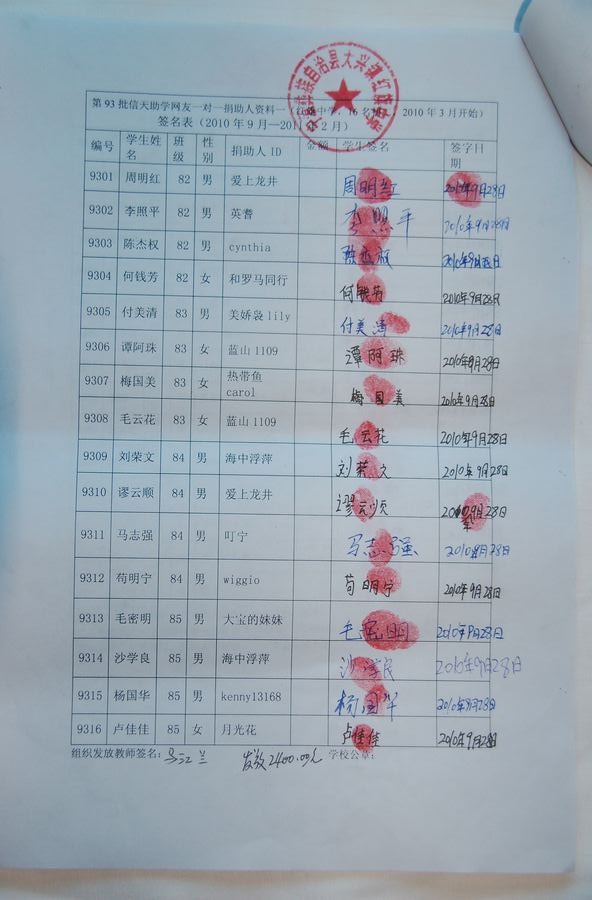 第93批信天助学网友一对一捐助人资料一(红 中学，16名 2010年3月开始)
签名表（2010年9月—2011 2月）
编号 学生姓名 班级 性别 捐助人ID 金额 学生签名 签字日期
9301 周明红 82 男 爱上龙井 周明红 2010年9月28日
9302 李照平 82 男 英耆 李照平 2010年9月28日
9303 陈杰权 82 男 cynthia 陈杰权 2010年9月 日
9304 何钱芳 82 女 和罗马同行 何钱芳 2010年9月28日
9305 付美清 83 男 美娇袅lily 付美清 2010年9月28日
9306 谭阿珠 83 女 蓝山1109 谭阿珠 2010年9月28日
9307 梅国美 83 女 热带鱼carol 梅国美 2010年9月28日
9308 毛云花 83 女 蓝山1109 毛云花 2010年9月28日
9309 刘荣文 84 男 海中浮萍 刘荣文 2010年9月28日
9310 谬云顺 84 男 爱上龙井 谬云顺 2010 9月28日
9311 马志强 84 男 叮宁 马志强 2010年8月28日
9312 苟明宁 84 男 wiggio 苟明宁 2010年9月28日
9313 毛密明 85 男 大宝的妹妹 毛密明 2010年9月28日
9314 沙学良 85 男 海中浮萍 沙学良 2010年9月28日
9315 杨国华 85 男 kenny13168 杨国华 2010年9月28日
9316 卢佳佳 85 女 月光花 卢佳佳 2010年9月28日
组织发放教师签名： 兰 发放2400.00元 学校公章：
族自治县大兴镇红 中学